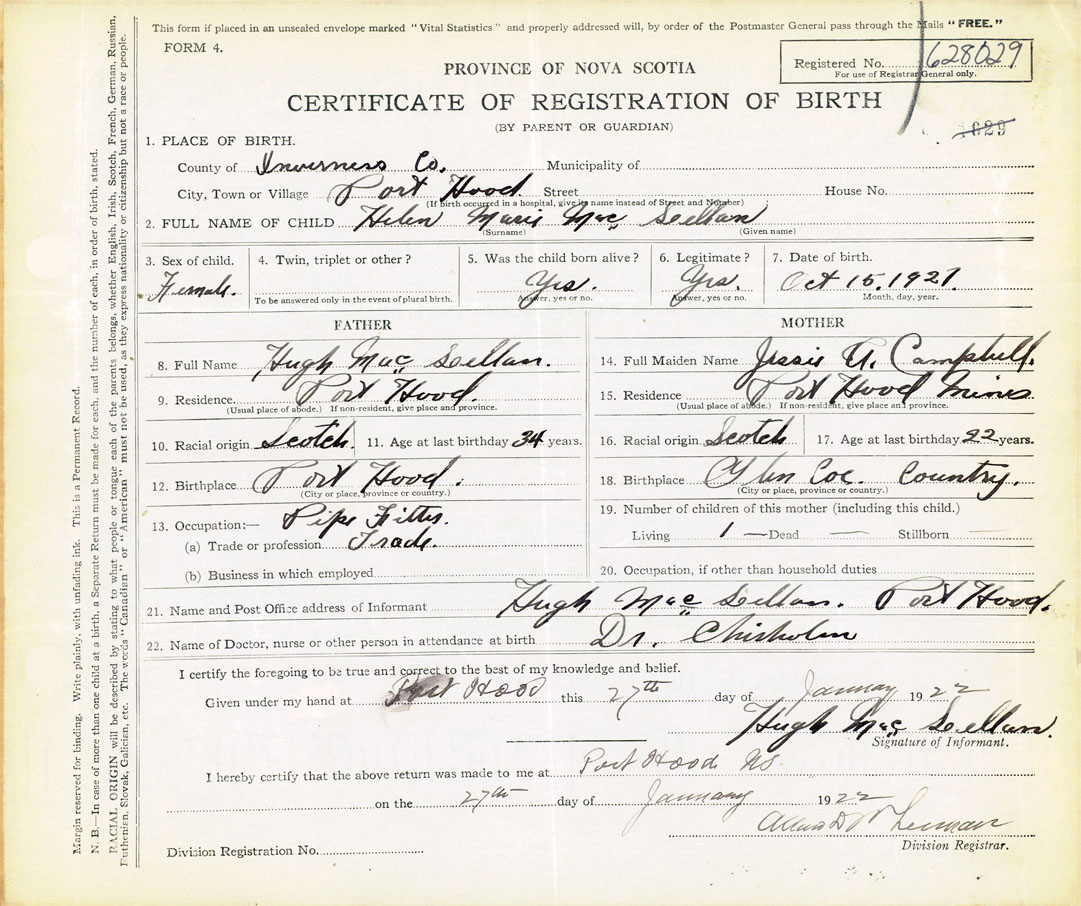 This form if placed in an unsealed envelope marked "Vital Statistics" and properly addressed will, by order of the Postmaster General pass through the Mails "FREE."
FORM 4.
Registered No. 628029
For use of Registrar General only.
PROVINCE OF NOVA SCOTIA
CERTIFICATE OF REGISTRATION OF BIRTH
(BY PARENT OR GUARDIAN)
1. PLACE OF BIRTH.
County of Inverness Co. Municipality of
City, Town or Village Port Hood Street House No.
(If birth occurred in a hospital, give its name instead of Street and Number)
2. FULL NAME OF CHILD Helen Marie Mac Lellan
(Surname) (Given name)
3. Sex of child. 4. Twin, triplet or other? 5. Was the child born alive? 6. Legitimate? 7. Date of birth.
Female. Yes. Yes. Oct 15, 1921.
To be answered only in the event of plural birth. Answer, yes or no. Answer, yes or no. Month, day, year.
FATHER
8. Full Name Hugh Mac Lellan.
9. Residence. Port Hood.
(Usual place of abode.) If non-resident, give place and province.
10. Racial origin Scotch. 11. Age at last birthday 34 years.
12. Birthplace Port Hood.
(City or place, province or country.)
13. Occupation:— Pipe Fitter.
(a) Trade or profession Trade.
(b) Business in which employed
MOTHER
14. Full Maiden Name Jessie A. Campbell.
15. Residence Port Hood Mines
(Usual place of abode.) If non-resident, give place and province.
16. Racial origin Scotch 17. Age at last birthday 22 years.
18. Birthplace Glen Coe. Country.
(City or place, province or country.)
19. Number of children of this mother (including this child.)
Living 1 — Dead — Stillborn —
20. Occupation, if other than household duties
21. Name and Post Office address of Informant Hugh Mac Lellan. Port Hood.
22. Name of Doctor, nurse or other person in attendance at birth Dr. Chisholm
I certify the foregoing to be true and correct to the best of my knowledge and belief.
Given under my hand at Port Hood this 27th day of January 1922
Hugh Mac Lellan.
Signature of Informant.
I hereby certify that the above return was made to me at Port Hood NS.
on the 27th day of January 1922
Division Registrar.
Division Registration No.
Margin reserved for binding. Write plainly, with unfading ink. This is a Permanent Record.
N. B.—In case of more than one child at a birth, a Separate Return must be made for each, and the number of each, in order of birth, stated.
RACIAL ORIGIN will be described by stating to what people or tongue each of the parents belongs, whether English, Irish, Scotch, French, German, Russian,
Ruthenian, Slovak, Galician, etc. The words "Canadian" or "American" must not be used, as they express nationality or citizenship but not a race or people.